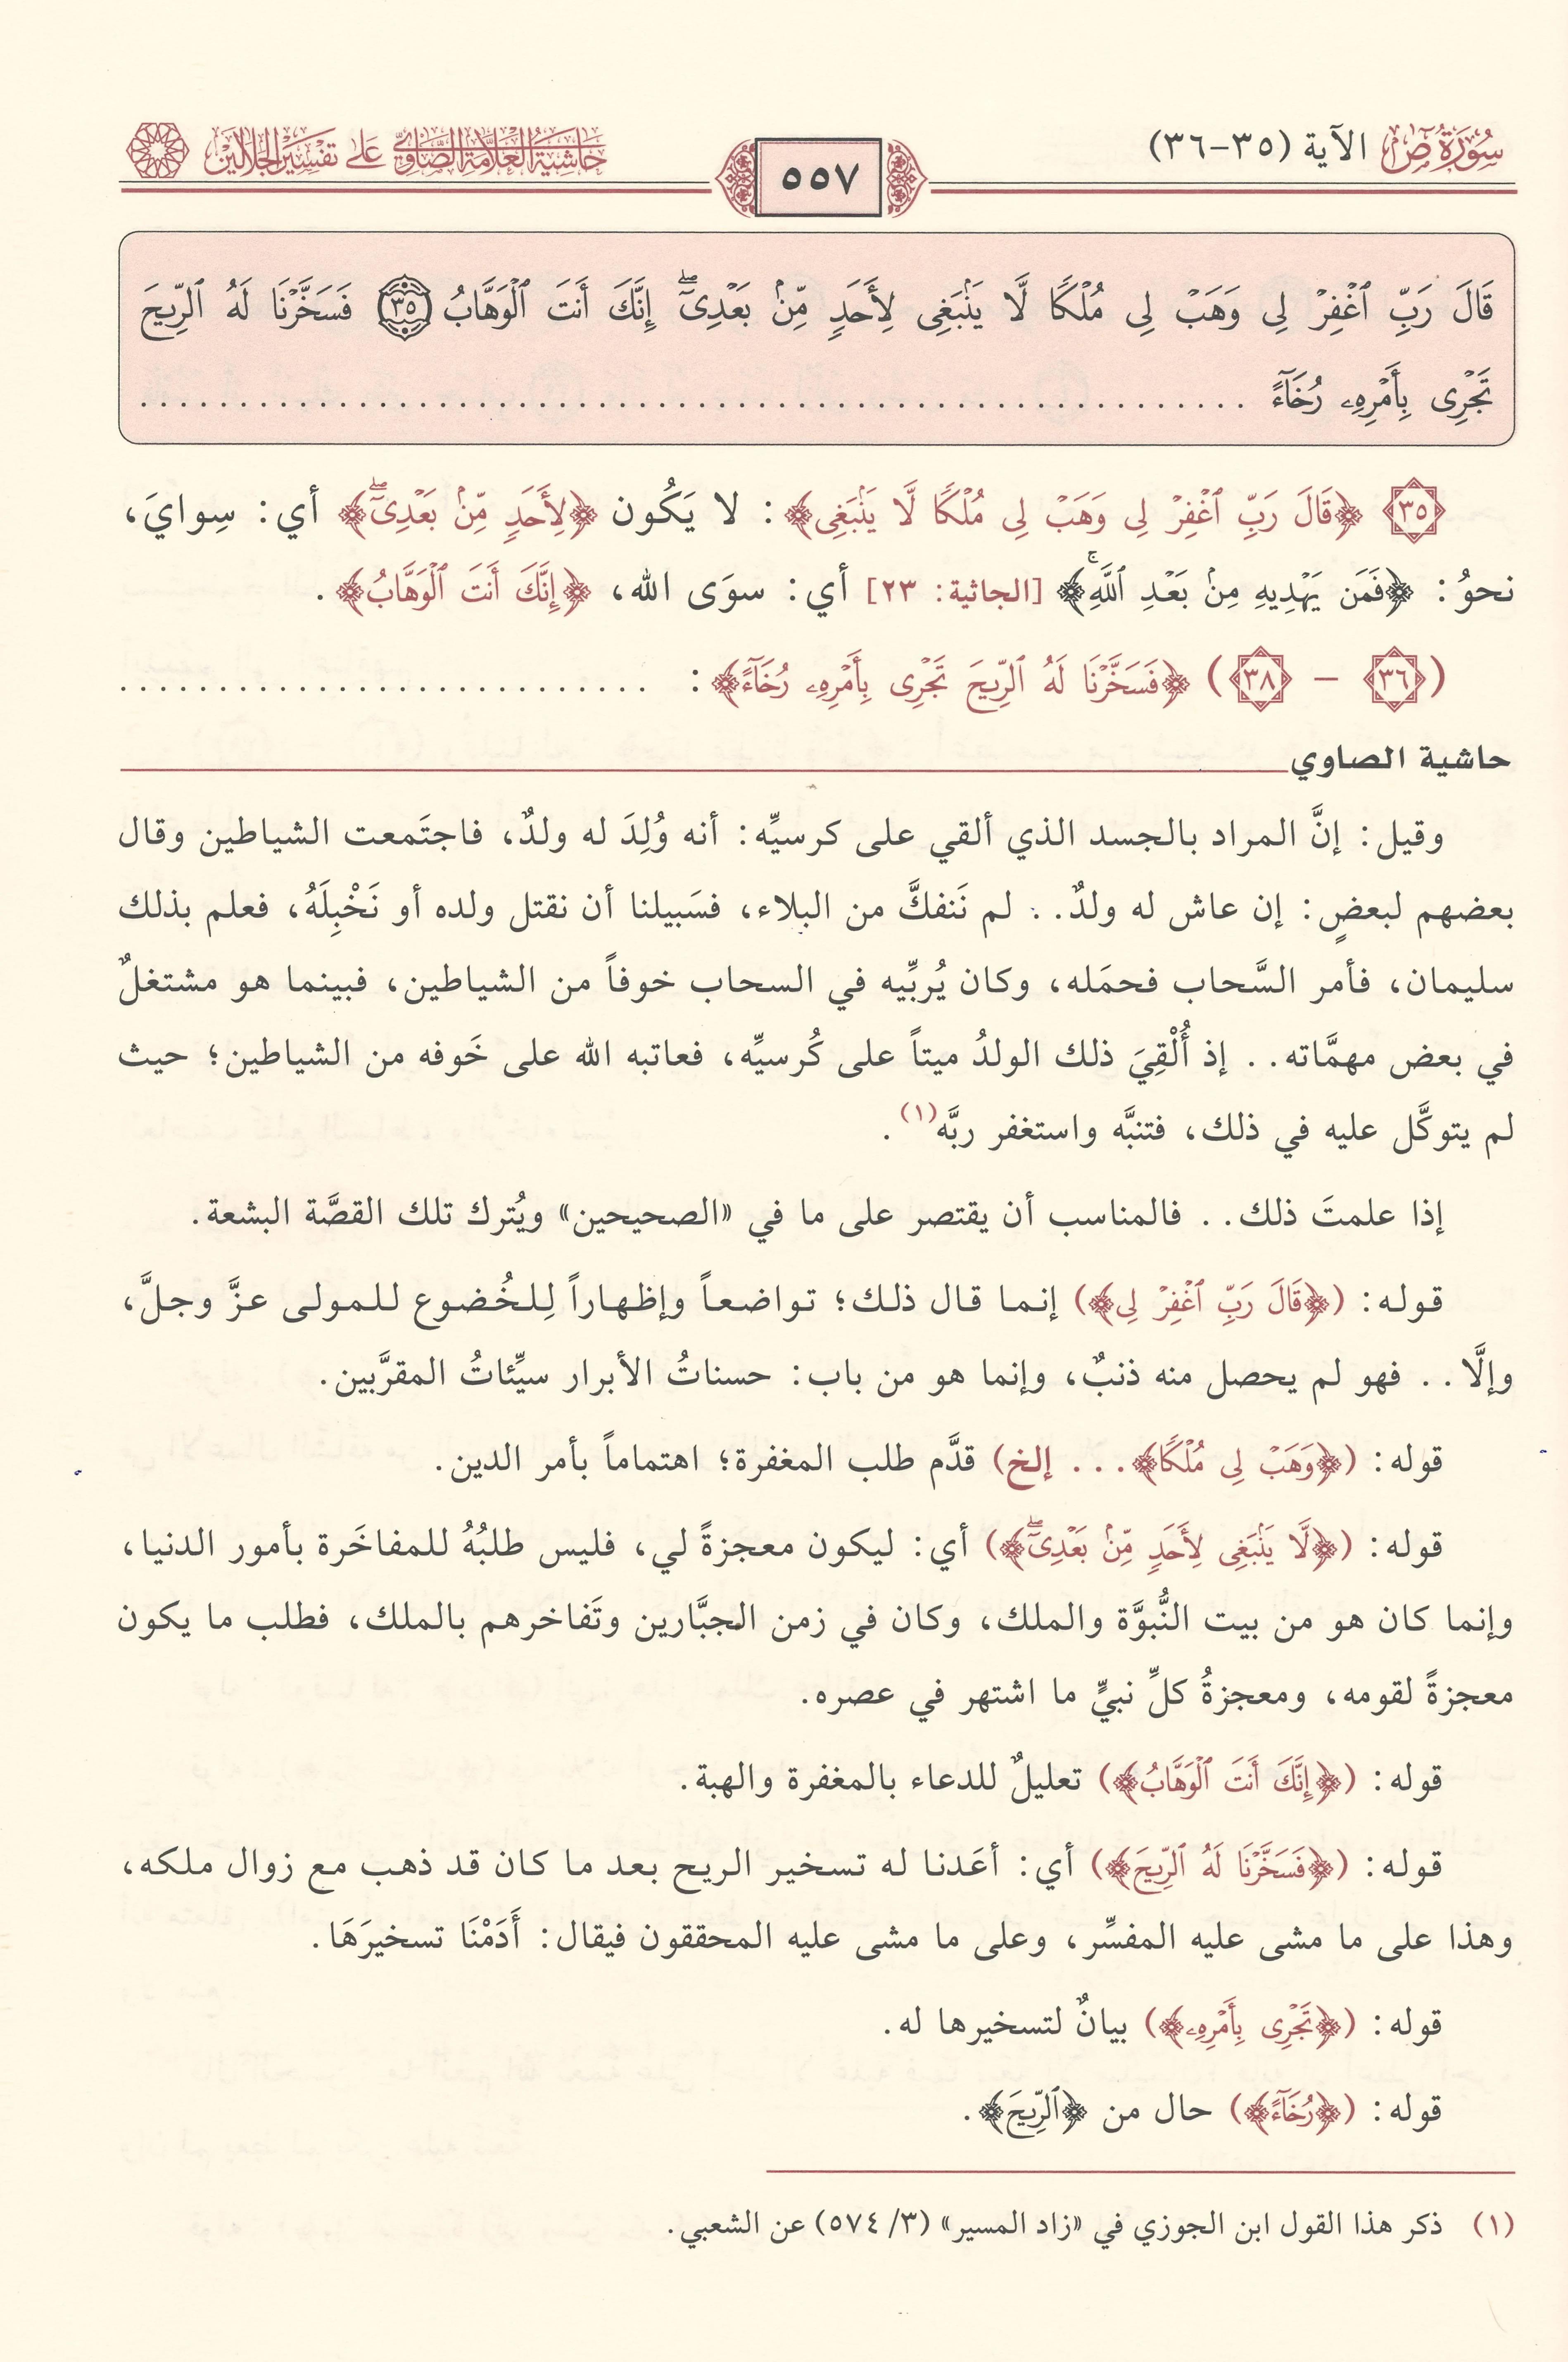 سُورَةُ صٓ الآية (٣٥-٣٦)
٥٥٧
حَاشِيَةُ العَلَّامَةِ الصَّاوِيِّ عَلَى تَفْسِيرِ الجَلَالَيْنِ
قَالَ رَبِّ ٱغْفِرْ لِى وَهَبْ لِى مُلْكًا لَّا يَنۢبَغِى لِأَحَدٍ مِّنۢ بَعْدِىٓۖ إِنَّكَ أَنتَ ٱلْوَهَّابُ ٣٥ فَسَخَّرْنَا لَهُ ٱلرِّيحَ
تَجْرِى بِأَمْرِهِۦ رُخَآءً ...............
٣٥ ﴿قَالَ رَبِّ ٱغْفِرْ لِى وَهَبْ لِى مُلْكًا لَّا يَنۢبَغِى﴾: لا يَكُون ﴿لِأَحَدٍ مِّنۢ بَعْدِىٓۖ﴾ أي: سِوايَ،
نحوُ: ﴿فَمَن يَهْدِيهِ مِنۢ بَعْدِ ٱللَّهِۚ﴾ [الجاثية: ٢٣] أي: سوَى الله، ﴿إِنَّكَ أَنتَ ٱلْوَهَّابُ﴾.
(٣٦ – ٣٨) ﴿فَسَخَّرْنَا لَهُ ٱلرِّيحَ تَجْرِى بِأَمْرِهِۦ رُخَآءً﴾: ...............
حاشية الصاوي
وقيل: إنَّ المراد بالجسد الذي ألقي على كرسيِّه: أنه وُلِدَ له ولدٌ، فاجتَمعت الشياطين وقال
بعضهم لبعضٍ: إن عاش له ولدٌ.. لم نَنفكَّ من البلاء، فسَبيلنا أن نقتل ولده أو نَخْبِلَهُ، فعلم بذلك
سليمان، فأمر السَّحاب فحمَله، وكان يُربِّيه في السحاب خوفاً من الشياطين، فبينما هو مشتغلٌ
في بعض مهمَّاته.. إذ أُلْقِيَ ذلك الولدُ ميتاً على كُرسيِّه، فعاتبه الله على خَوفه من الشياطين؛ حيث
لم يتوكَّل عليه في ذلك، فتنبَّه واستغفر ربَّه(١).
إذا علمتَ ذلك.. فالمناسب أن يقتصر على ما في «الصحيحين» ويُترك تلك القصَّة البشعة.
قوله: (﴿قَالَ رَبِّ ٱغْفِرْ لِى﴾) إنما قال ذلك؛ تواضعاً وإظهاراً لِلخُضوع للمولى عزَّ وجلَّ،
وإلَّا.. فهو لم يحصل منه ذنبٌ، وإنما هو من باب: حسناتُ الأبرار سيِّئاتُ المقرَّبين.
قوله: (﴿وَهَبْ لِى مُلْكًا﴾... إلخ) قدَّم طلب المغفرة؛ اهتماماً بأمر الدين.
قوله: (﴿لَّا يَنۢبَغِى لِأَحَدٍ مِّنۢ بَعْدِىٓۖ﴾) أي: ليكون معجزةً لي، فليس طلبُهُ للمفاخَرة بأمور الدنيا،
وإنما كان هو من بيت النُّبوَّة والملك، وكان في زمن الجبَّارين وتَفاخرهم بالملك، فطلب ما يكون
معجزةً لقومه، ومعجزةُ كلِّ نبيٍّ ما اشتهر في عصره.
قوله: (﴿إِنَّكَ أَنتَ ٱلْوَهَّابُ﴾) تعليلٌ للدعاء بالمغفرة والهبة.
قوله: (﴿فَسَخَّرْنَا لَهُ ٱلرِّيحَ﴾) أي: أعَدنا له تسخير الريح بعد ما كان قد ذهب مع زوال ملكه،
وهذا على ما مشى عليه المفسِّر، وعلى ما مشى عليه المحققون فيقال: أَدَمْنَا تسخيرَهَا.
قوله: (﴿تَجْرِى بِأَمْرِهِۦ﴾) بيانٌ لتسخيرها له.
قوله: (﴿رُخَآءً﴾) حال من ﴿ٱلرِّيحَ﴾.
(١) ذكر هذا القول ابن الجوزي في «زاد المسير» (٣/ ٥٧٤) عن الشعبي.